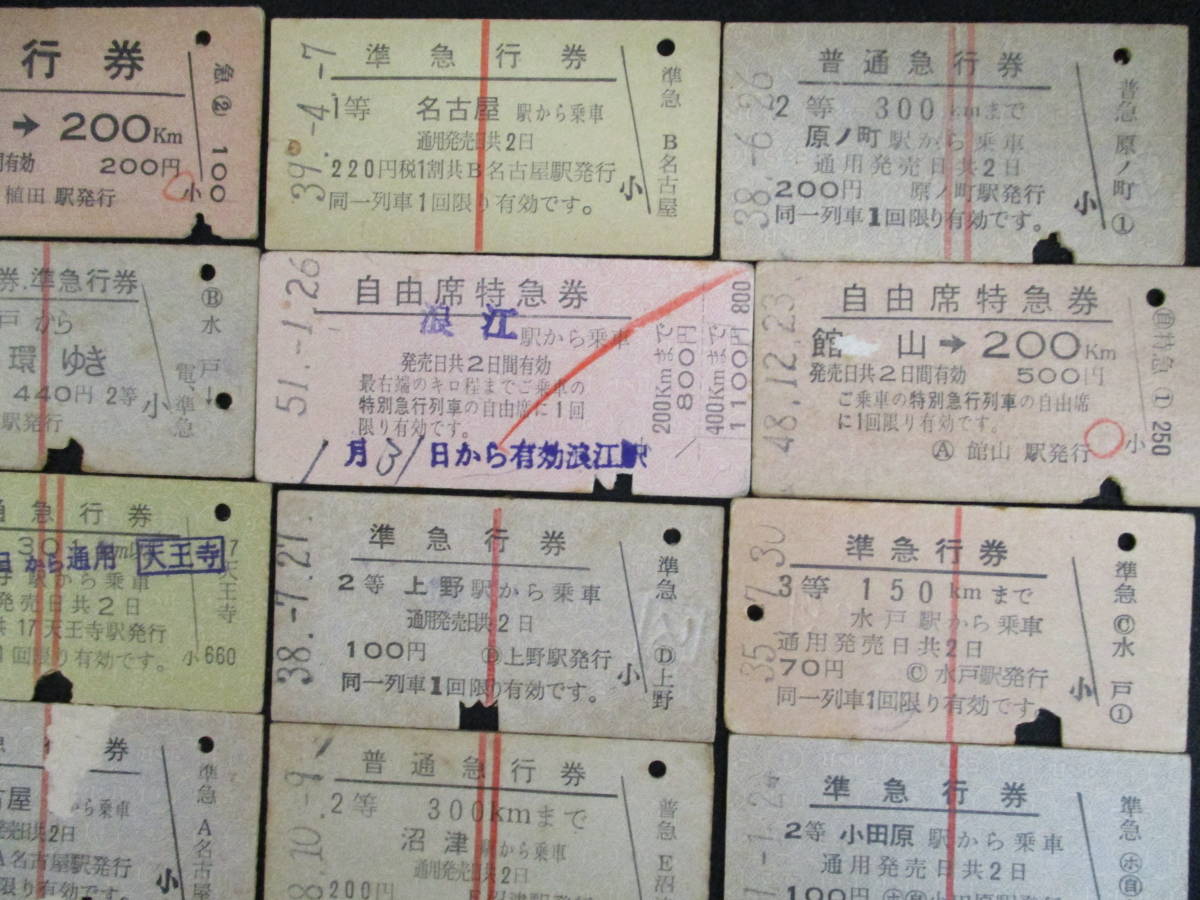 行券
➔200Km
有効 200円
植田 駅発行
小
急② 100
39.-4.-7
準急行券
1等 名古屋 駅から乗車
通用発売日共2日
220円税1割共B名古屋駅発行
同一列車1回限り有効です。
小
準急 B名古屋
38.-6.26
普通急行券
2等 300kmまで
原ノ町駅から乗車
通用発売日共2日
200円 原ノ町駅発行
同一列車1回限り有効です。
小
普急 原ノ町①
券.準急行券
戸から
環ゆき
440円 2等
駅発行
小
Ⓑ水戸
電、準急
51.-1.26
自由席特急券
浪江駅から乗車
発売日共2日間有効
最右端のキロ程までご乗車の
特別急行列車の自由席に1回
限り有効です。
1月31日から有効浪江駅
200Kmまで 800円
400Kmまで 1100円
800
48.12.23
自由席特急券
館山➔200Km
発売日共2日間有効 500円
ご乗車の特別急行列車の自由席
に1回限り有効です。
Ⓐ 館山 駅発行
小
㊀特急 ① 250
急行券
から通用 天王寺
駅から乗車
発売日共2日
17天王寺駅発行
1回限り有効です。
小660
天王寺
38.-7.27.
準急行券
2等 上野駅から乗車
通用発売日共2日
100円 Ⓓ上野駅発行
同一列車1回限り有効です。
小
準急 Ⓓ上野
35.-7.30
準急行券
3等 150kmまで
水戸駅から乗車
通用発売日共2日
70円 Ⓒ水戸駅発行
同一列車1回限り有効です。
小
準急 Ⓒ水戸①
券
から乗車
発売日共2日
A名古屋駅発行
限り有効です。
小
準急 A名古屋
8.10.-9
普通急行券
2等 300kmまで
沼津駅から乗車
通用発売日共2日
200円
普急 E沼
準急行券
2等 小田原 駅から乗車
通用発売日共2日
100円 小田原駅発行
準急